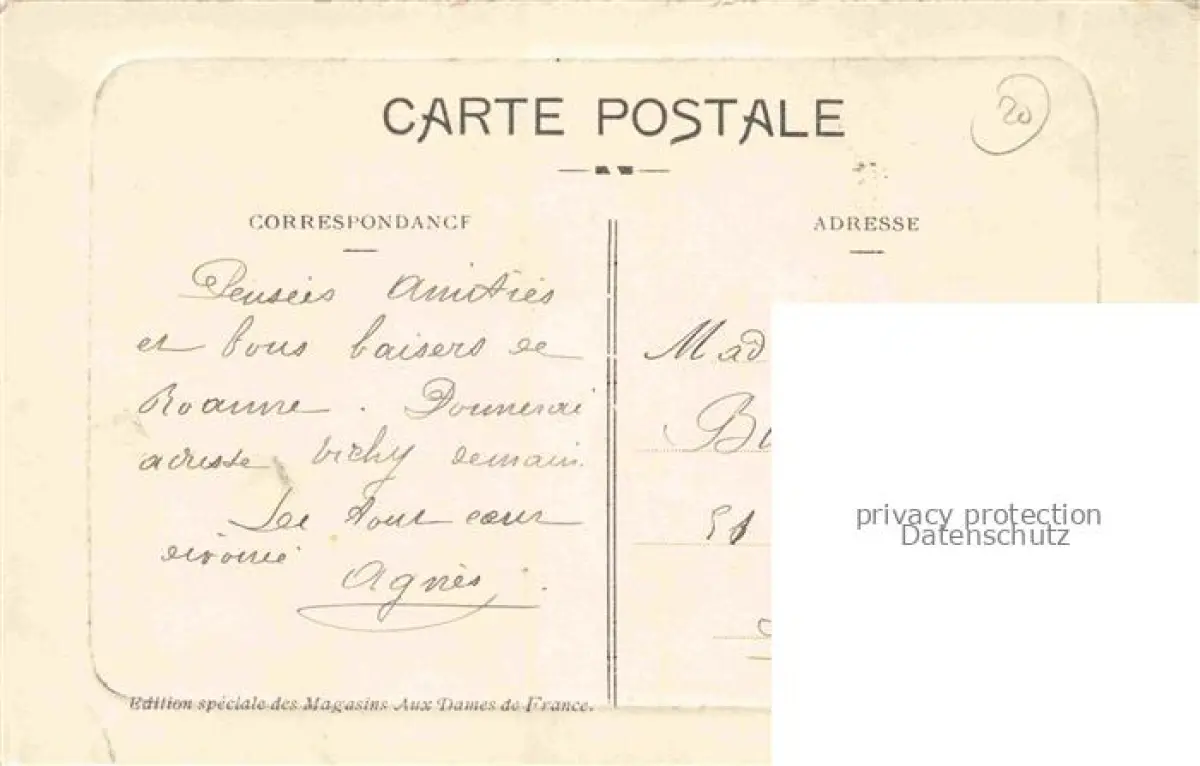 CARTE POSTALE
20
CORRESPONDANCE
ADRESSE
Pensées Amitiés
et bons baisers de
Roanne . Donnerai
adresse Vichy demain.
tout cœur
dévoué
Agnès .
Mad
Bu
51
privacy protection
Datenschutz
Edition spéciale des Magasins Aux Dames de France.